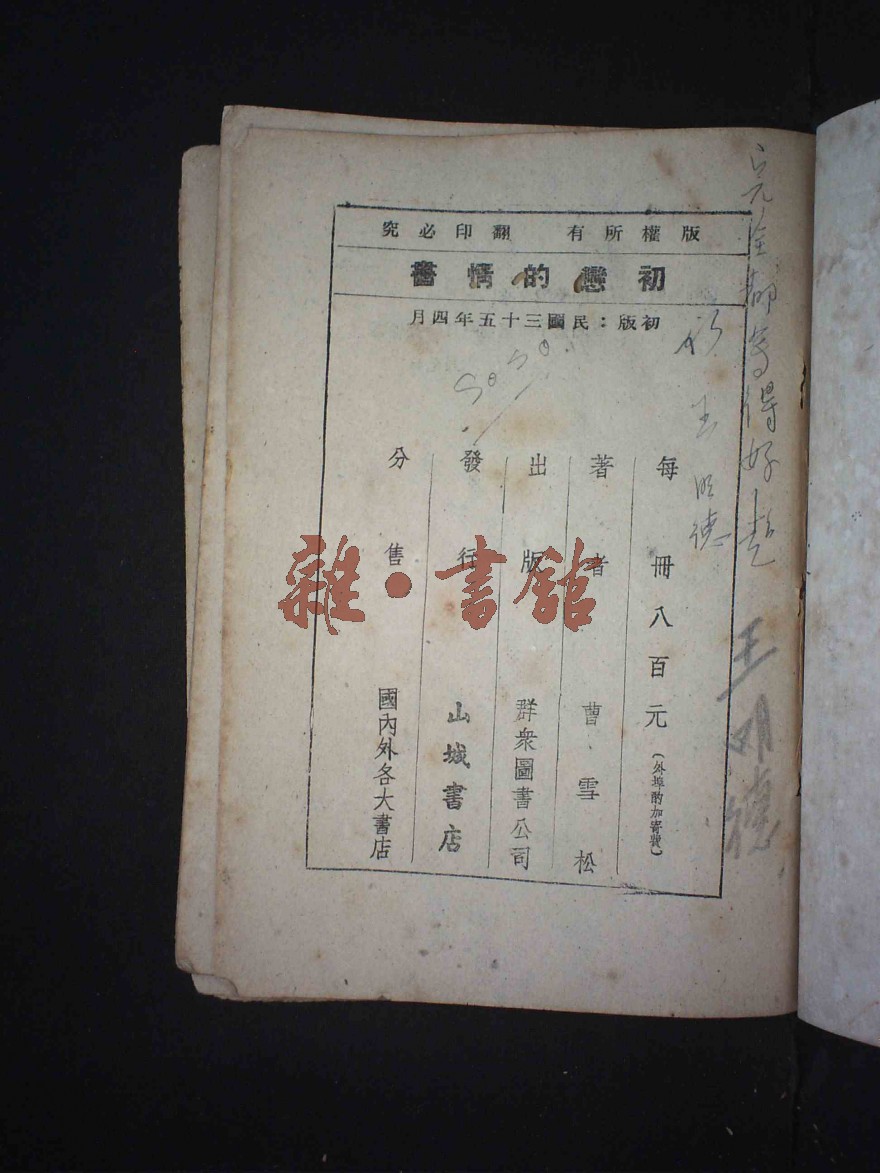 版權所有 翻印必究
初戀的情書
初版：民國三十五年四月
每冊八百元（外埠酌加寄費）
著者 曹雪松
出版 群衆圖書公司
發行 山城書店
分售 國內外各大書店
王明德
王明德
雜·書館